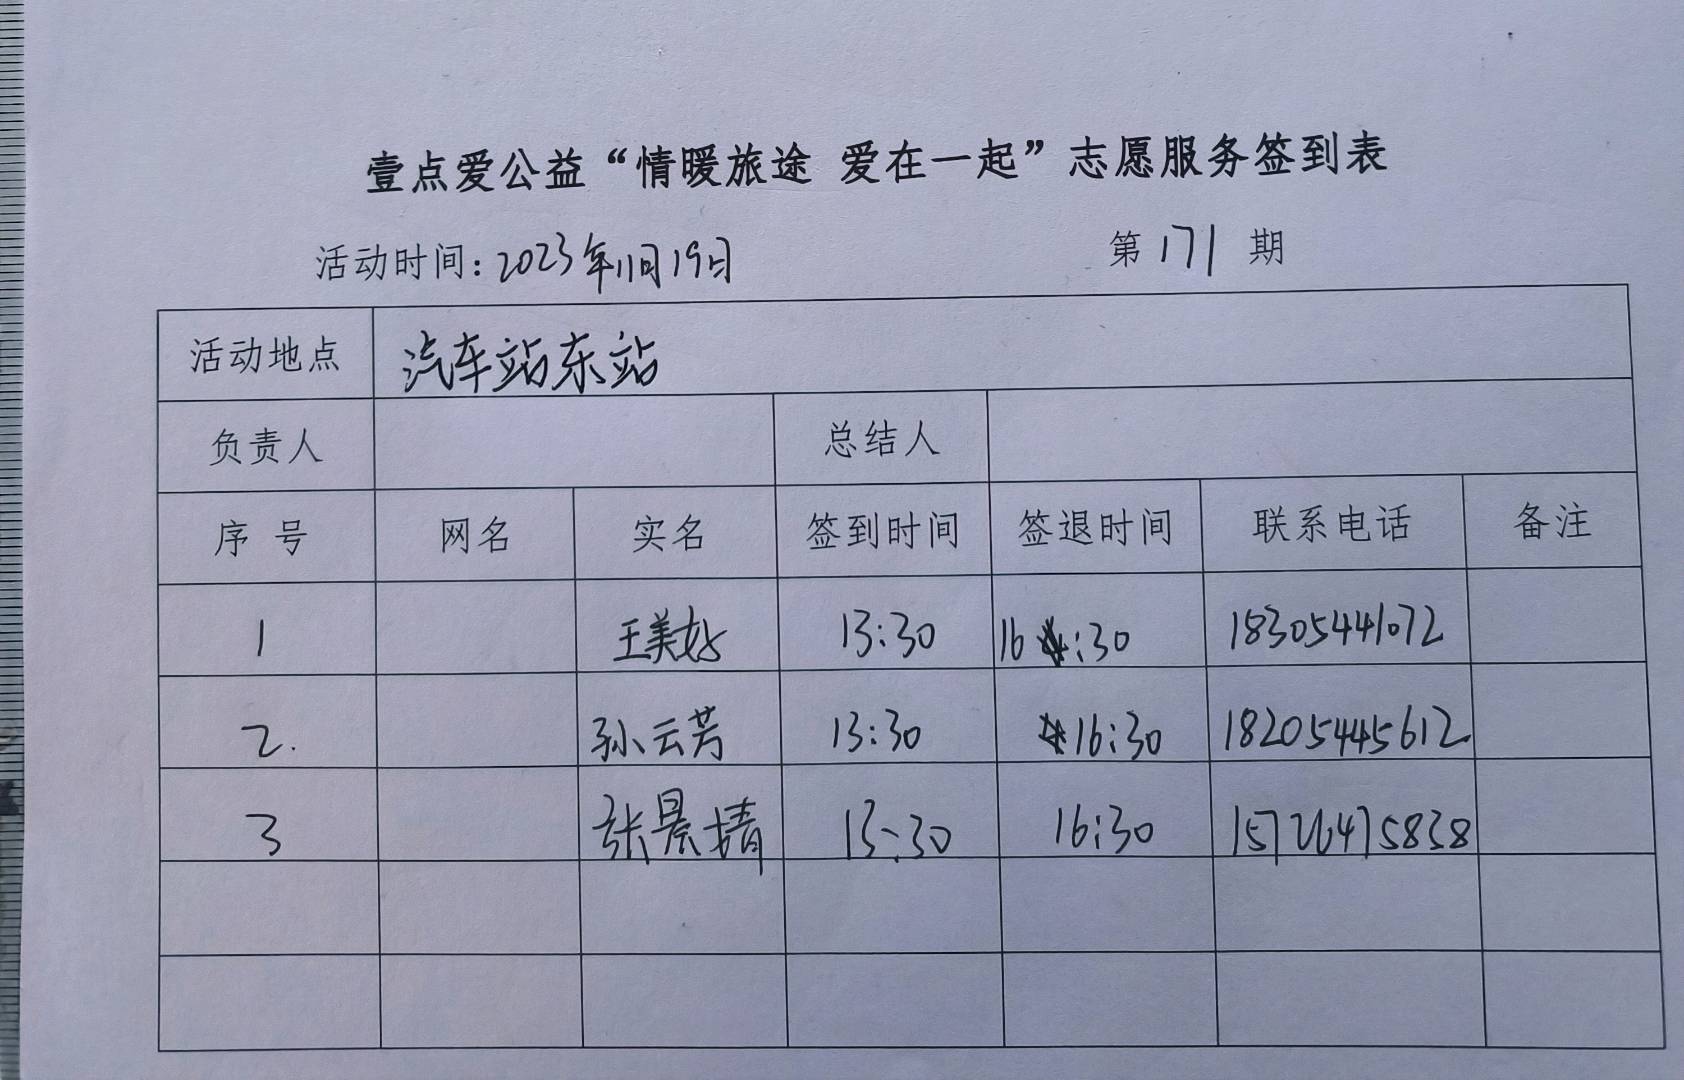 壹点爱公益“情暖旅途 爱在一起”志愿服务签到表
活动时间：2023年11月19日 第 171 期
活动地点 汽车站东站
负责人 总结人
序 号 网名 实名 签到时间 签退时间 联系电话 备注
1 王美好 13:30 16:30 18305441072
2. 孙云芳 13:30 16:30 18205445612
3 张景婧 13:30 16:30 15726475838